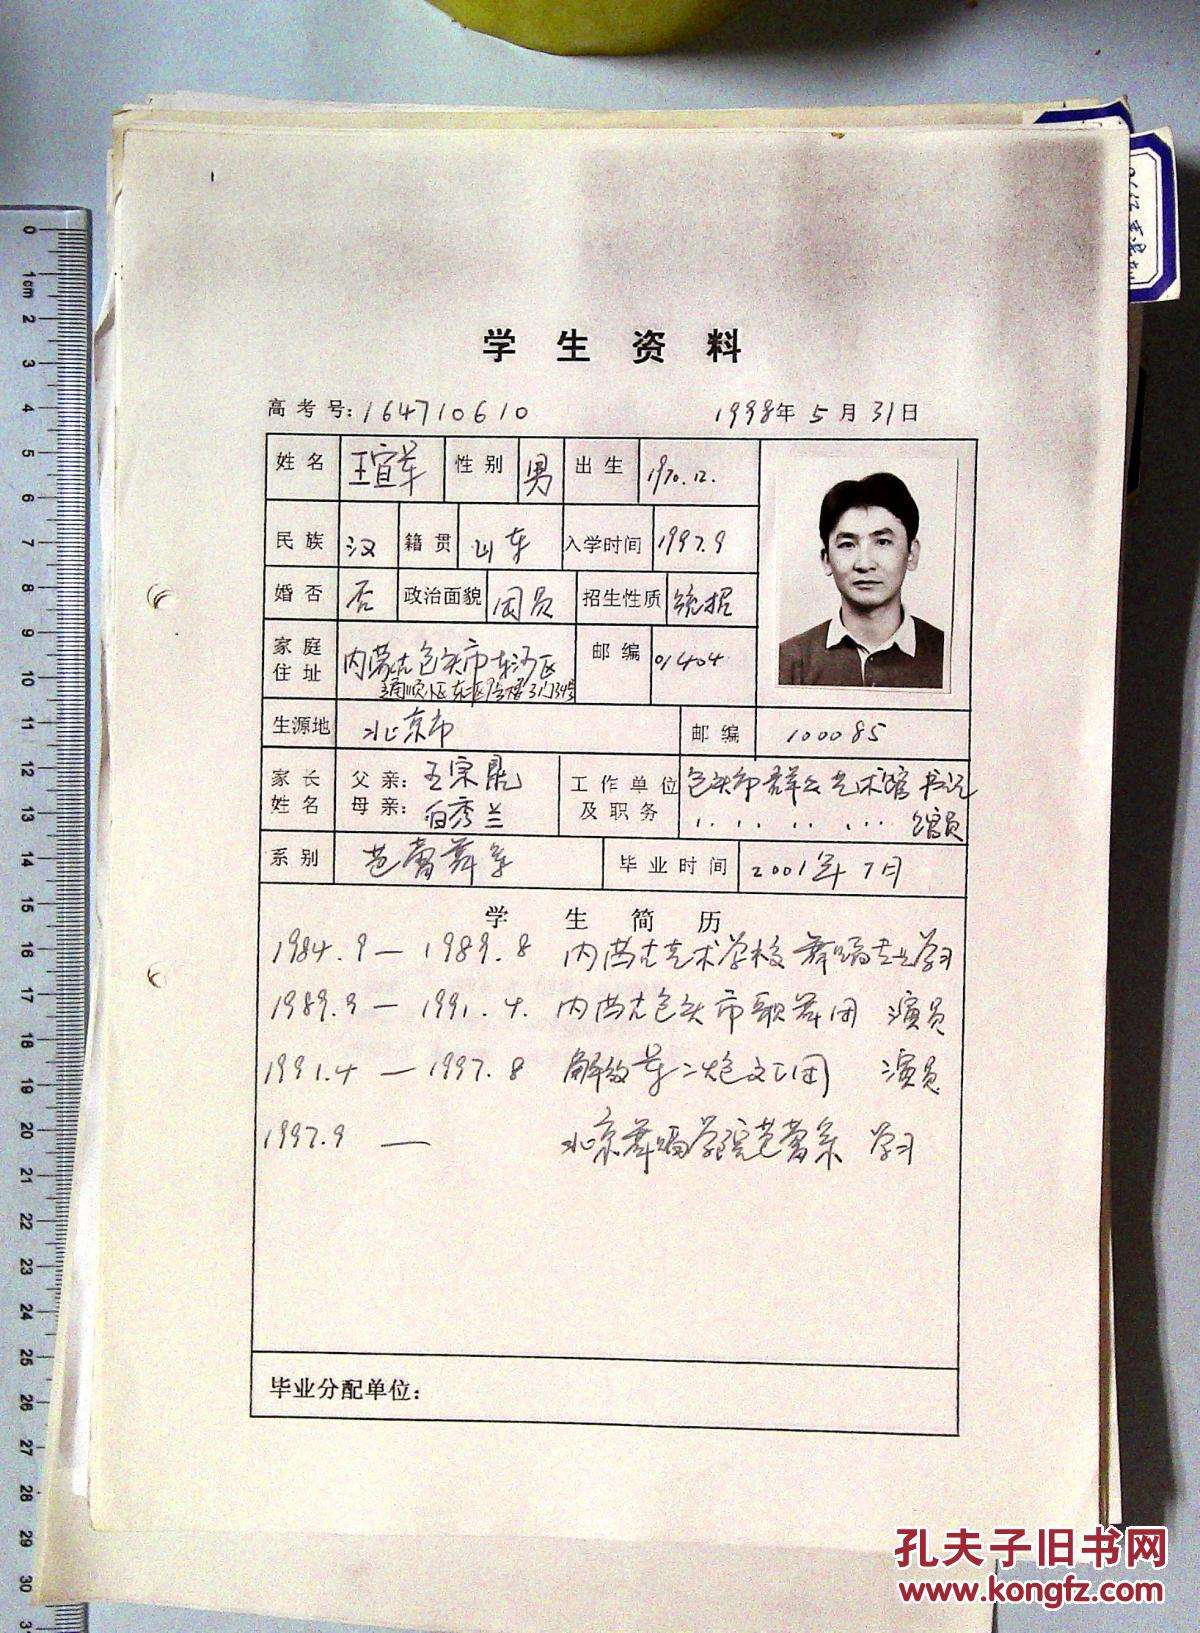 学生资料
高考号:164710610 1998年5月31日
姓名 王宣军 性别 男 出生 1970.12.
民族 汉 籍贯 山东 入学时间 1997.9
婚否 否 政治面貌 团员 招生性质 统招
家庭住址 内蒙古包头市东河区 邮编 01404
生源地 北京市 邮编 100085
家长姓名 父亲: 王宗 母亲: 白秀兰 工作单位及职务 包头市群众艺术馆 书记
馆员
系别 芭蕾舞系 毕业时间 2001年7月
学生简历
1984.9— 1989.8 内蒙古艺术学校舞蹈专业学习
1989.9— 1991.4. 内蒙古包头市歌舞团 演员
1991.4 — 1997.8 解放军二炮文工团 演员
1997.9 — 北京舞蹈学院芭蕾系 学习
毕业分配单位:
孔夫子旧书网
www.kongfz.com
0
1cm
2
3
4
5
6
7
8
9
10
11
12
13
14
15
16
17
18
19
20
21
22
23
24
25
26
27
28
29
30